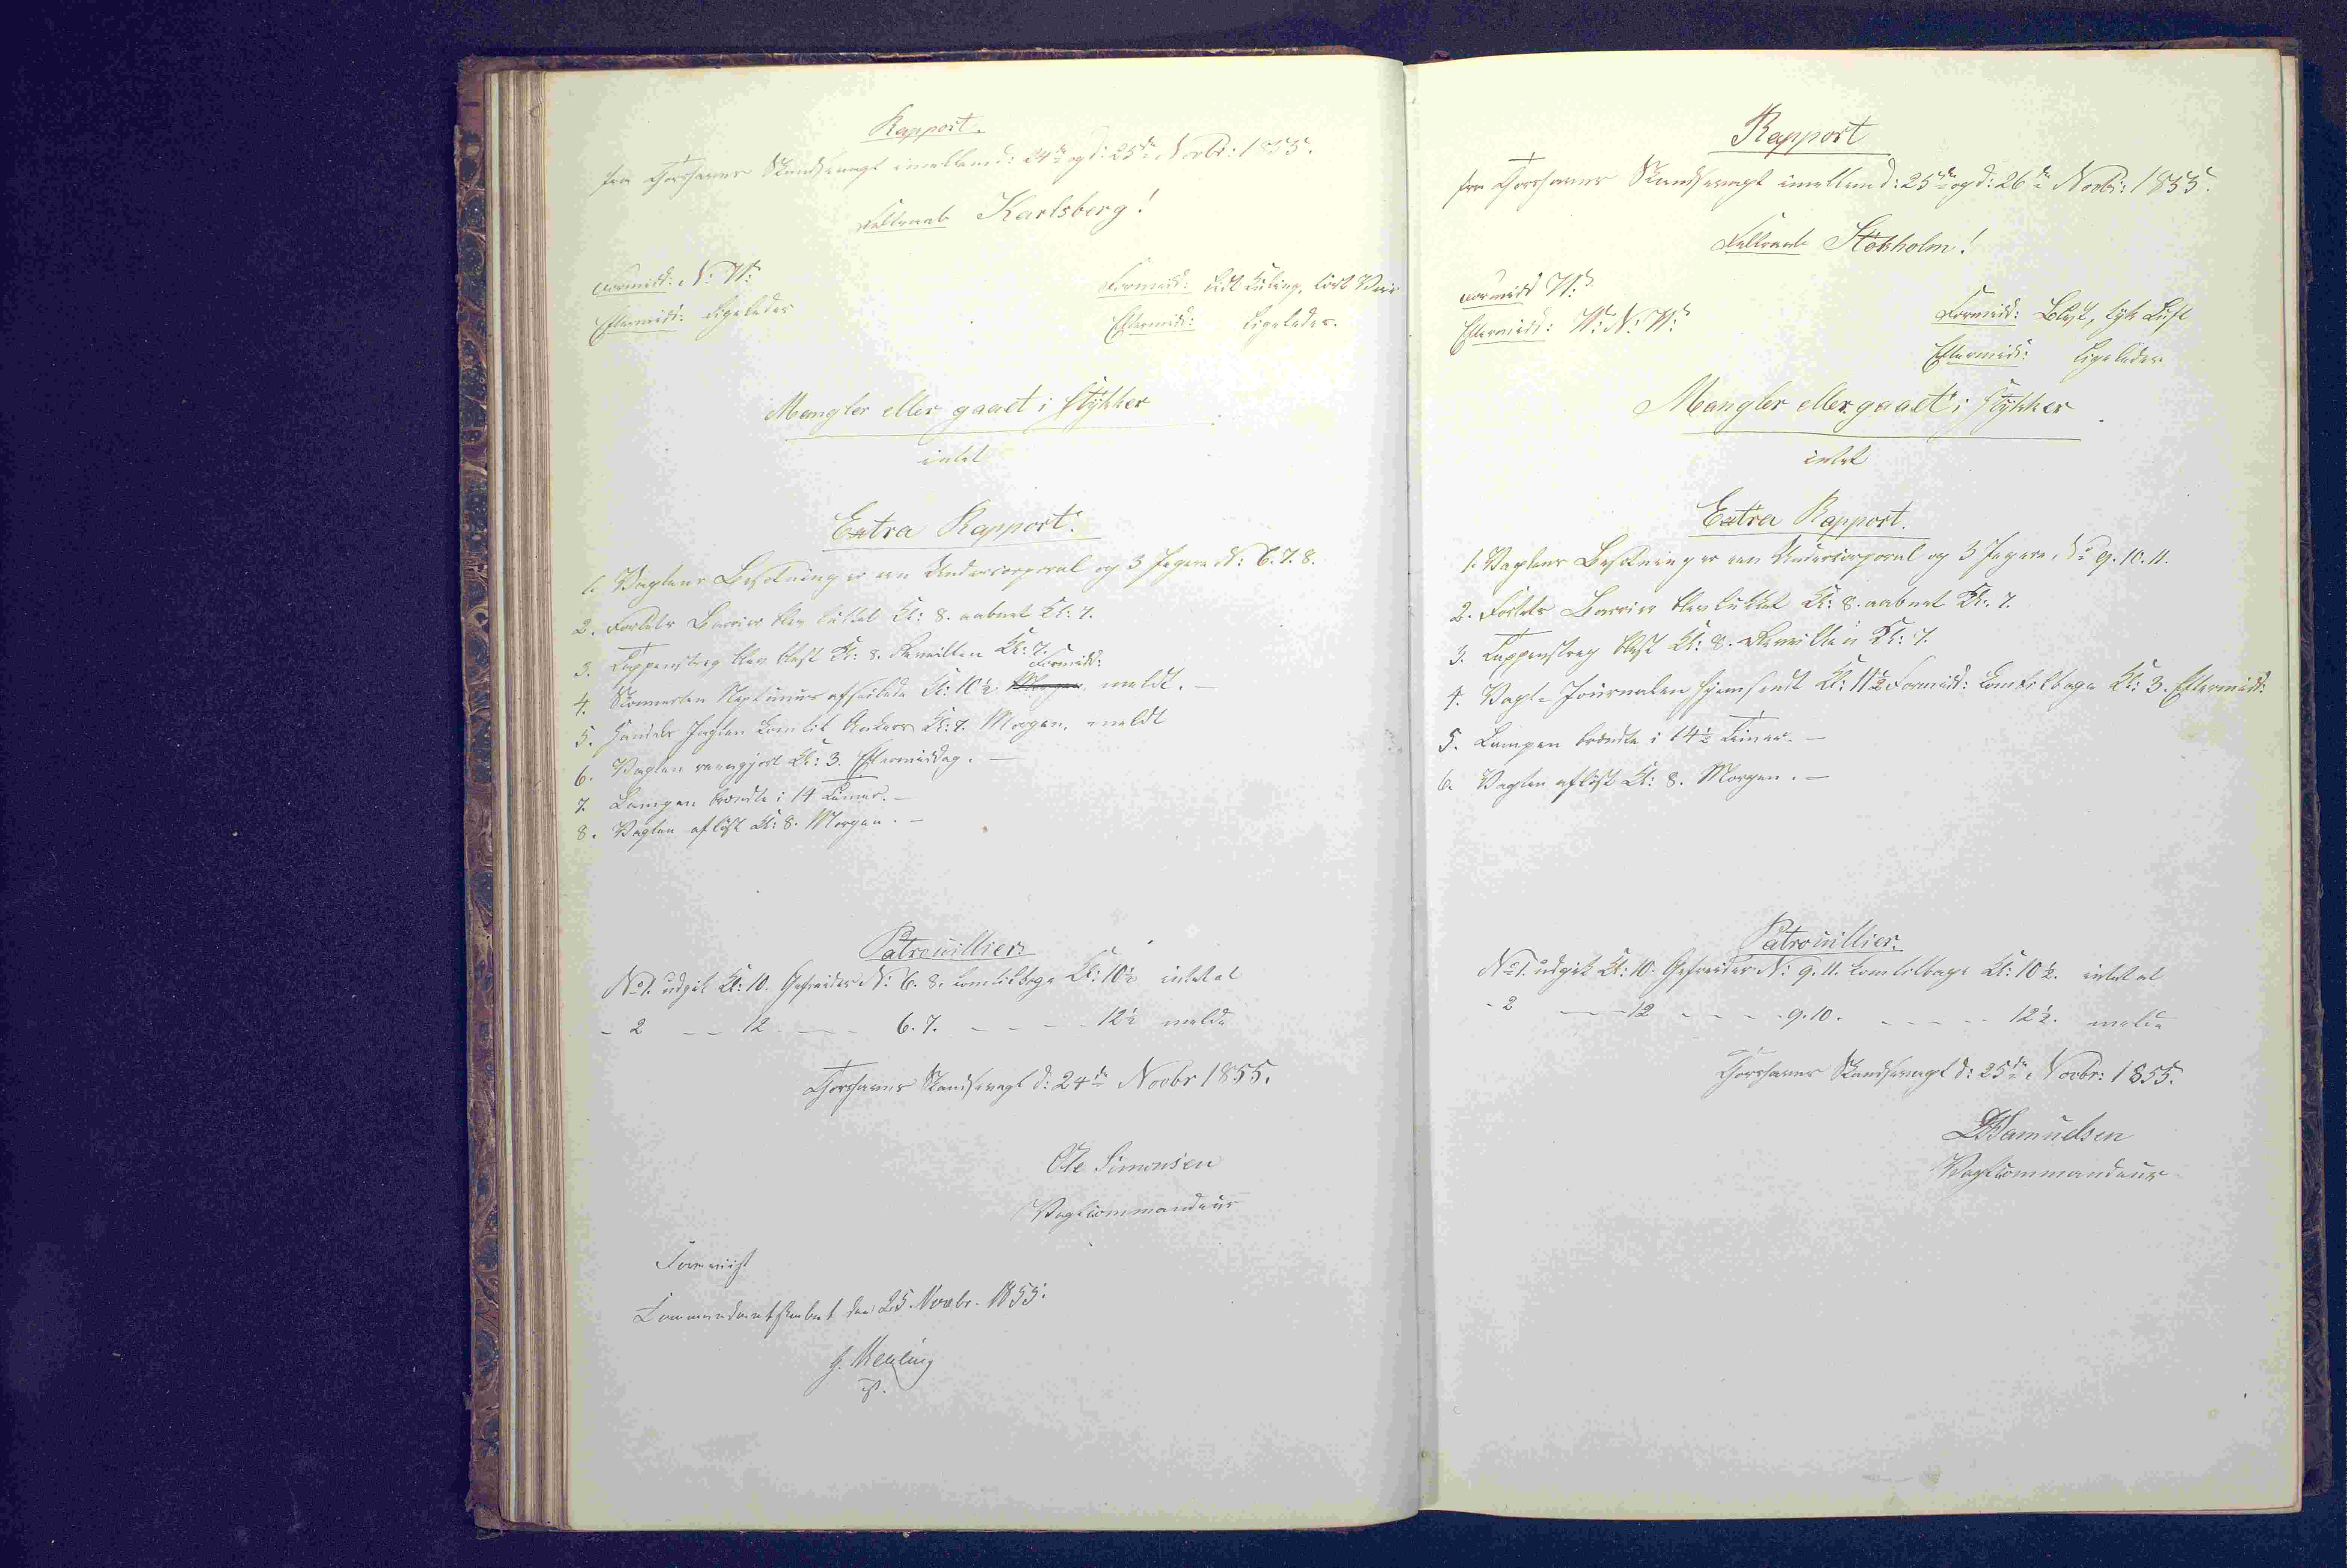 Rapport.
fra Thorshavns Skandsevagt imellem d: 24de og d: 25de Novbr: 1855.
Feltraab Karlsberg!
Formidd: N: W:
Eftermidd: Ligeledes
Formidd: Lidt Kuling, Veir
Eftermidd: Ligeledes.
Mangler eller gaaet i Stykker
intet
Extra Rapport.
1. Vagtens Besætning er en Undercorporal og 3 Jægere N: 6. 7. 8.
2. Fortets Barrier blev lukket Kl: 8. aabnet Kl: 7.
3. Tappenstreg blev blæst Kl: 8. Reveillen Kl: 7.
4. Skonnerten Neptunus afseilede Kl: 10½ Formidd: meldt. —
5. Handels Jagten kom til Ankers Kl: 7. Morgen. meldt
6. Vagten reengjort Kl: 3. Eftermiddag. —
7. Lampen brændte i 14 Timer. —
8. Vagten afløst Kl: 8. Morgen. —
Patrouillier.
No 1. udgik Kl: 10. Gefreider N: 6. 8. kom tilbage Kl: 10½ intet at
- 2 - - 12 - - - 6. 7. - - - - 12½ melde
Thorshavns Skandsevagt d: 24de Novbr 1855.
Ole Simonsen
Vagtcommandeur
Foreviist
Commandantskabet den 25. Novbr. 1855.
Rapport
fra Thorshavns Skandsevagt imellem d: 25de og d: 26de Novbr: 1855.
Feltraab Stokholm!
Formidd W:
Eftermidd: W: N: W:
Formidd: Blæst, tyk Luft
Eftermidd: Ligeledes
Mangler eller gaaet i Stykker
intet
Extra Rapport.
1. Vagtens Besætning er een Undercorporal og 3 Jægere, No 9. 10. 11.
2. Fortets Barrier blev lukket Kl: 8. aabnet Kl: 7.
3. Tappenstreg blæst Kl: 8. Reveillen Kl: 7.
4. Vagt-Journalen hjemsendt Kl: 11½ Formidd: kom tilbage Kl: 3. Eftermidd:
5. Lampen brændte i 14½ Timer. —
6. Vagten afløst Kl: 8. Morgen. —
Patrouillier.
No 1. udgik Kl: 10. Gefreider N: 9. 11. kom tilbage Kl: 10½. intet at
- 2 - - 12 - - - - 9. 10. - - - - 12½. melde
Thorshavns Skandsevagt d: 25de Novbr: 1855.
Samuelsen
Vagtcommandeur